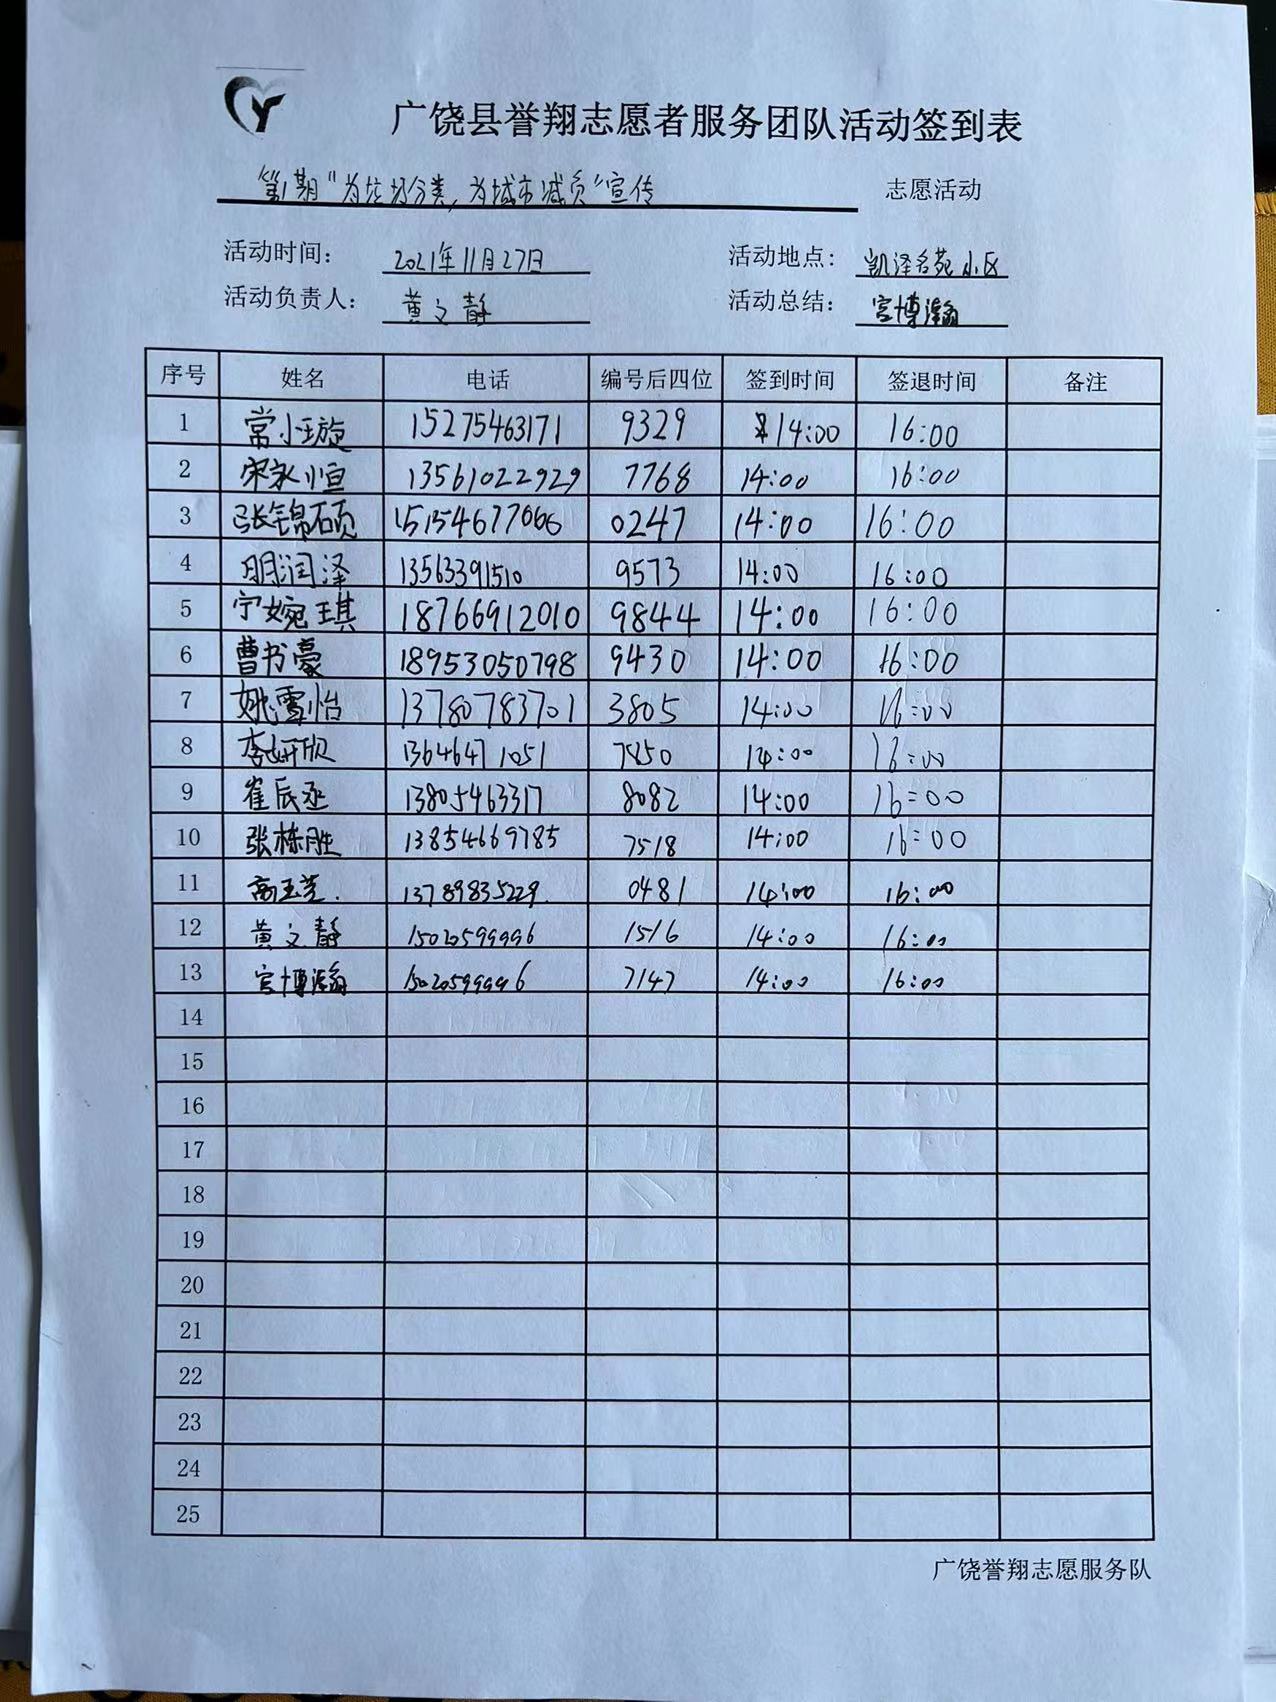 广饶县誉翔志愿者服务团队活动签到表
第1期“为垃圾分类,为城市减负”宣传 志愿活动
活动时间： 2021年11月27日 活动地点： 凯泽名苑小区
活动负责人： 黄文静 活动总结： 宫博瀚
序号 姓名 电话 编号后四位 签到时间 签退时间 备注
1 常小璇 15275463171 9329 14:00 16:00
2 宋永恒 13561022929 7768 14:00 16:00
3 张锦硕 15154677066 0247 14:00 16:00
4 明润泽 13563391510 9573 14:00 16:00
5 宁婉琪 18766912010 9844 14:00 16:00
6 曹书豪 18953050798 9430 14:00 16:00
7 姚雪怡 13780783701 3805 14:00 16:00
8 李妍欣 13646471051 7850 14:00 16:00
9 崔辰丞 13805463317 8082 14:00 16:00
10 张栋胜 13854669785 7518 14:00 16:00
11 高玉芝. 13789835229. 0481 14:00 16:00
12 黄文静 15020599996 1516 14:00 16:00
13 宫博瀚 15020599996 7147 14:00 16:00
14
15
16
17
18
19
20
21
22
23
24
25
广饶誉翔志愿服务队